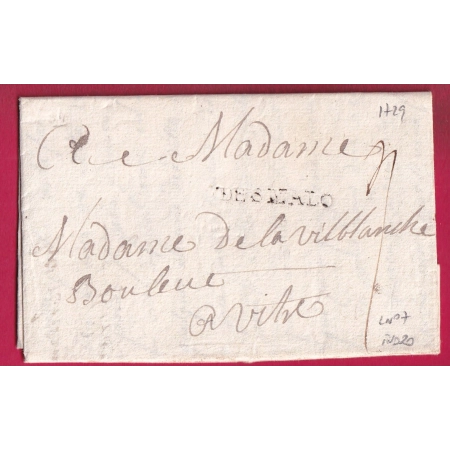 1729
A Madame
DE S MALO
Madame de la vilblanche
Bouleuc
a vitré
LN°7
IND20